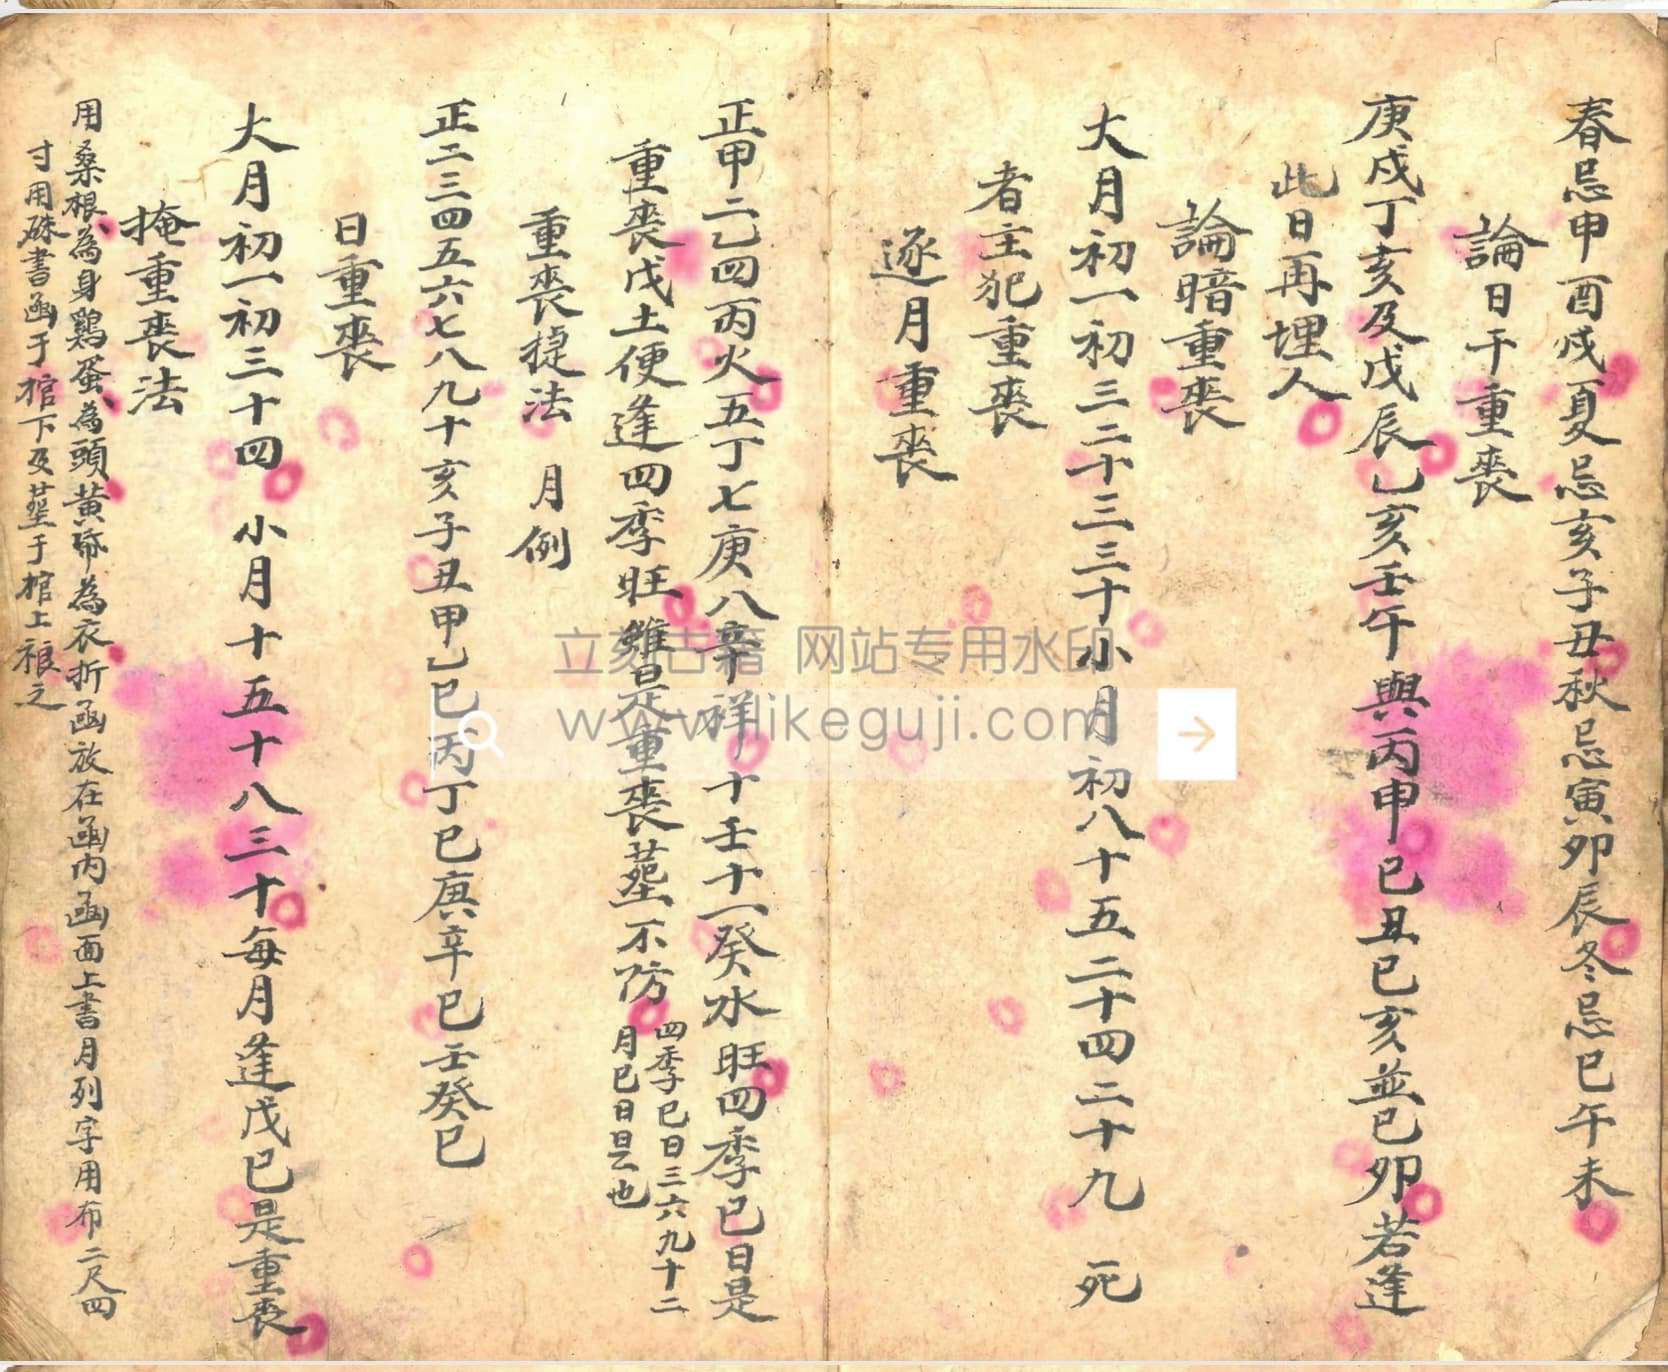 春忌申酉戌夏忌亥子丑秋忌寅卯辰冬忌巳午未
論日干重喪
庚戌丁亥及戊辰乙亥壬午與丙申已丑已亥並已卯若逢
此日再埋人
論暗重喪
大月初一初三二十三三十小月初八十五二十四二十九 死
者主犯重喪
逐月重喪
正甲二乙四丙火五丁七庚八辛祥十壬十一癸水旺四季已日是
重喪戊土便逢四季旺雖是重喪塟不防
四季已日三六九十二
月已日是也
重喪捷法 月例
正二三四五六七八九十亥子丑甲乙巳丙丁巳庚辛巳壬癸巳
日重喪
大月初一初三十四 小月十五十八三十每月逢戊已是重喪
掩重喪法
用桑根為身鷄蛋為頭黃帋為衣折函放在函内函面上書月列字用布二尺四
寸用硃書函于棺下及塟于棺上之
立刻古籍 网站专用水印
www.vlikeguji.com